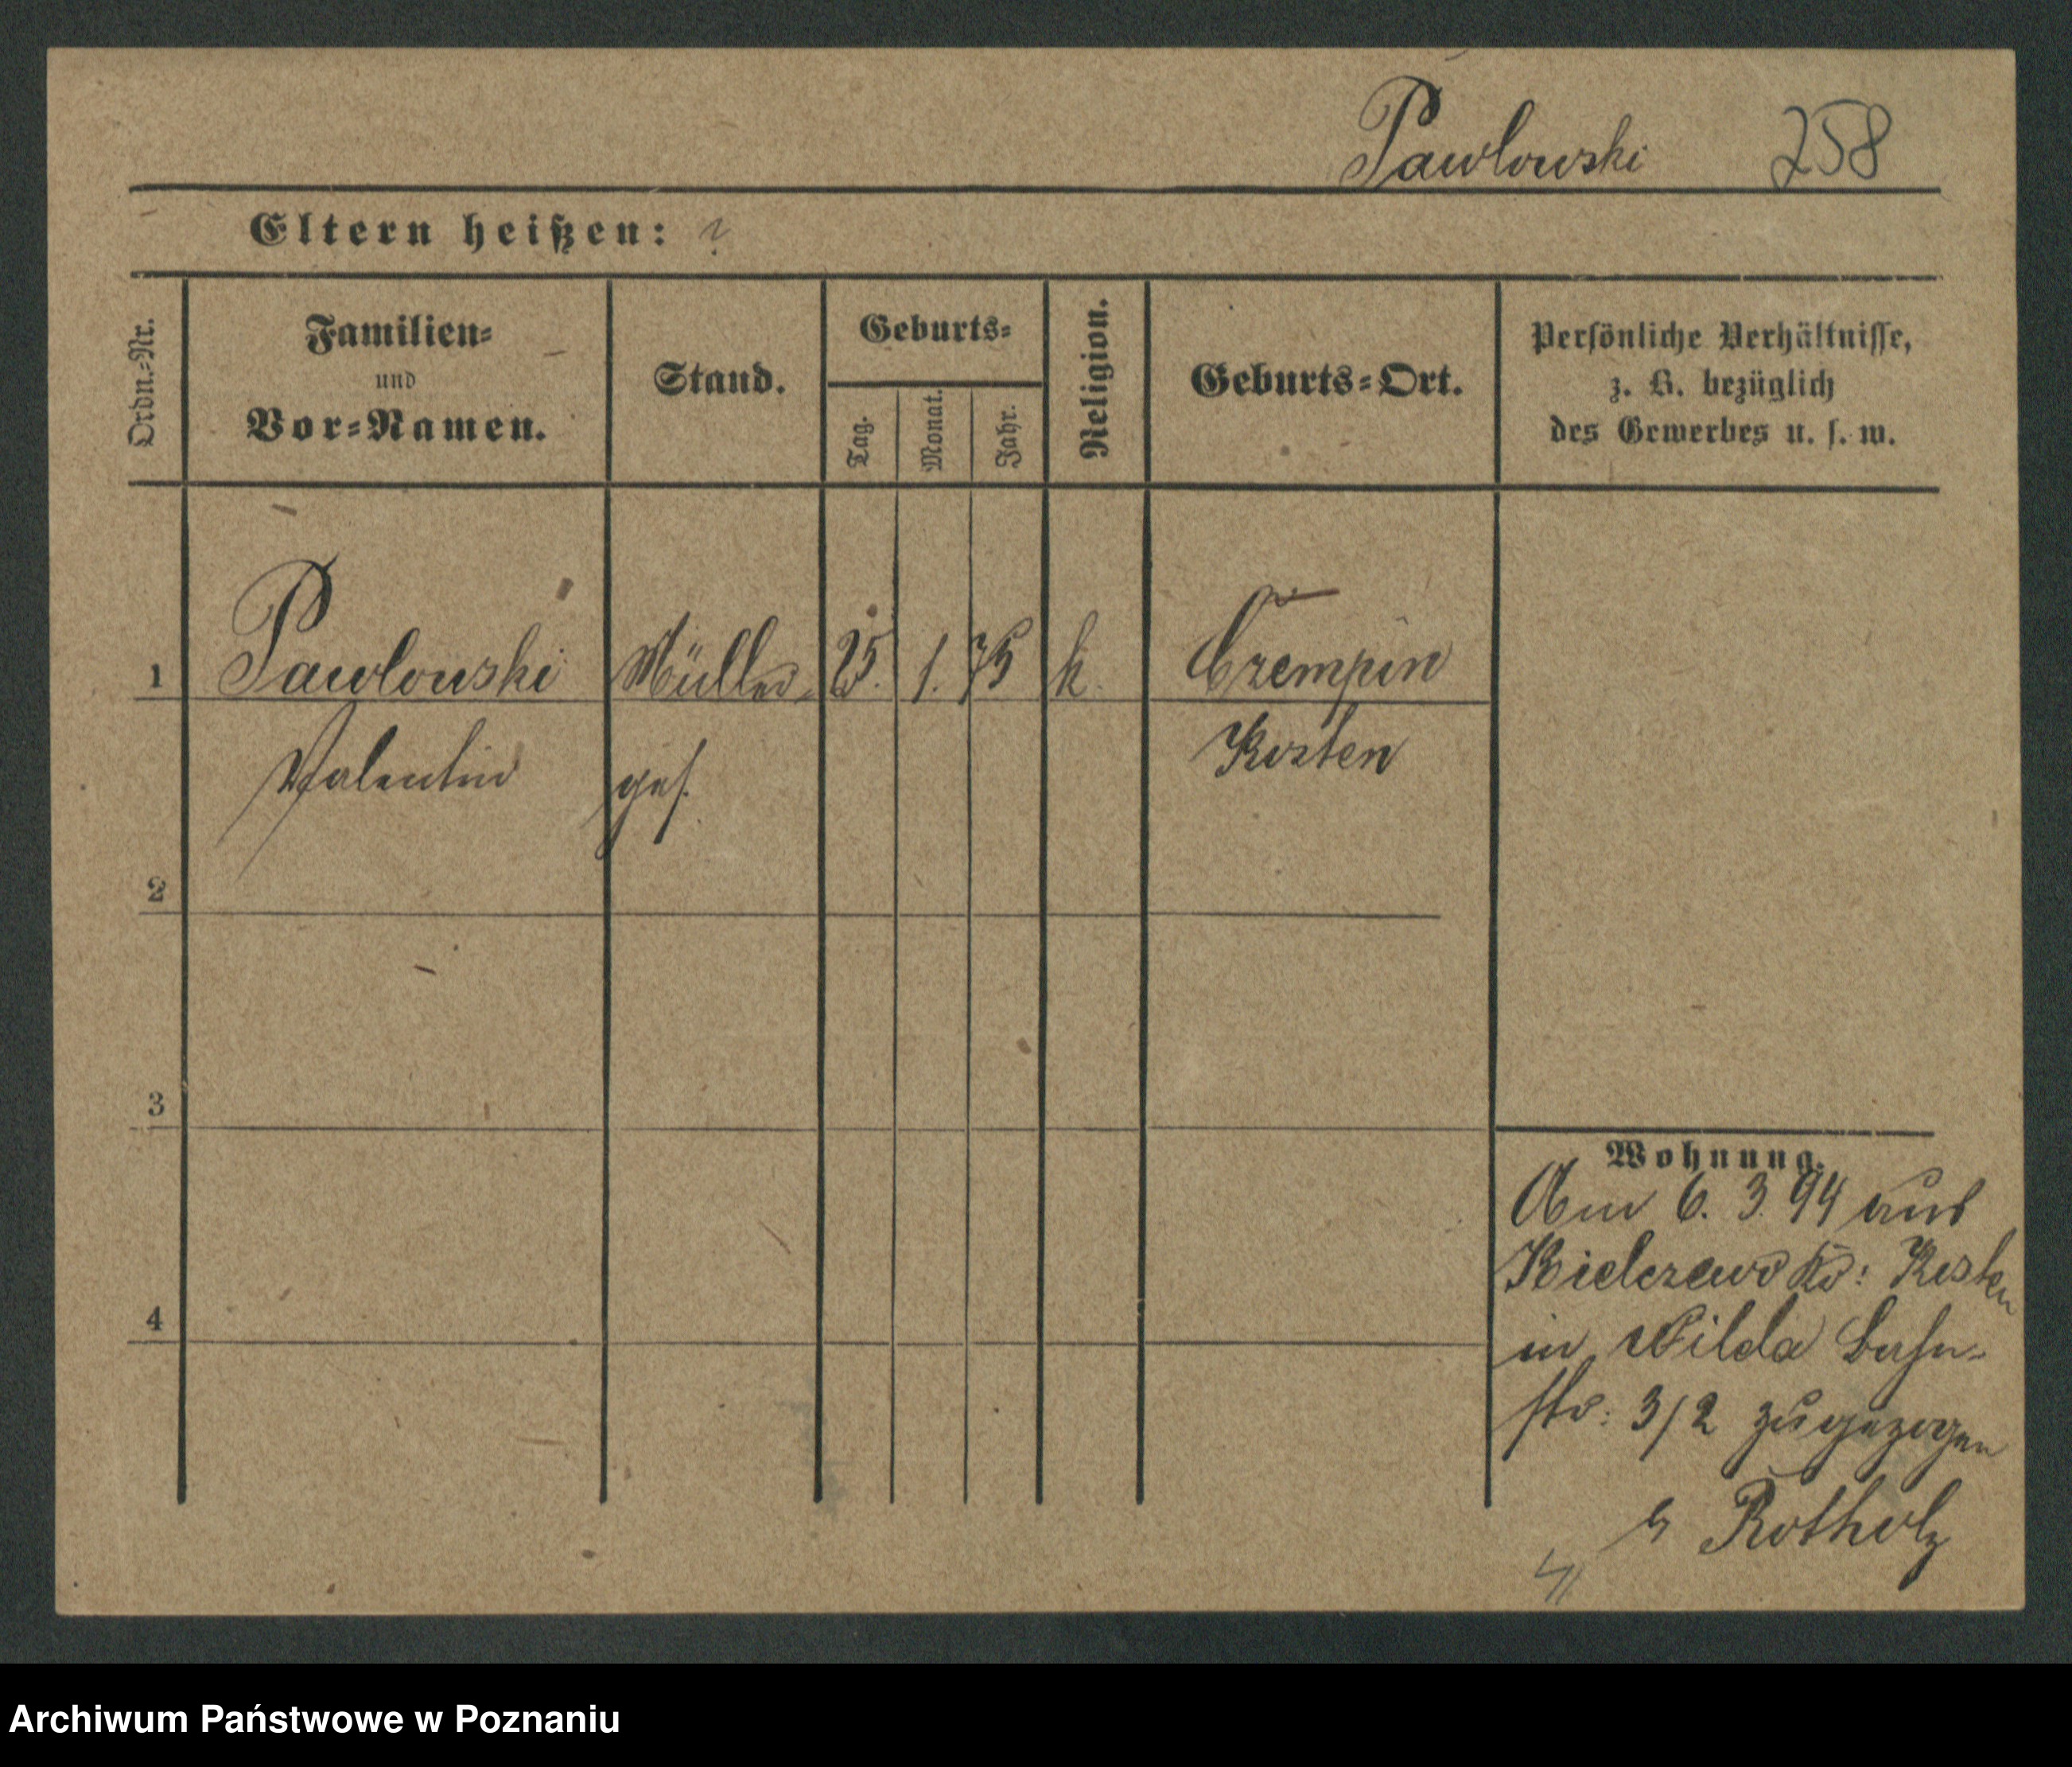 Pawlowski 258
Eltern heißen: ?
Ordn.-Nr.
Familien-
und
Vor-Namen.
Stand.
Geburts-
Tag.
Monat.
Jahr.
Religion.
Geburts-Ort.
Persönliche Verhältnisse,
z. B. bezüglich
des Gewerbes u. s. w.
1 Pawlowski Müller- 25. 1. 75 k. Czempin
Valentin ges. Kosten
2
3
4
Wohnung.
Am 6. 3. 94 aus
Kielczewo Kr: Kosten
in Wilda Bahn-
str: 3/2 zugezogen
b Rotholz
Archiwum Państwowe w Poznaniu